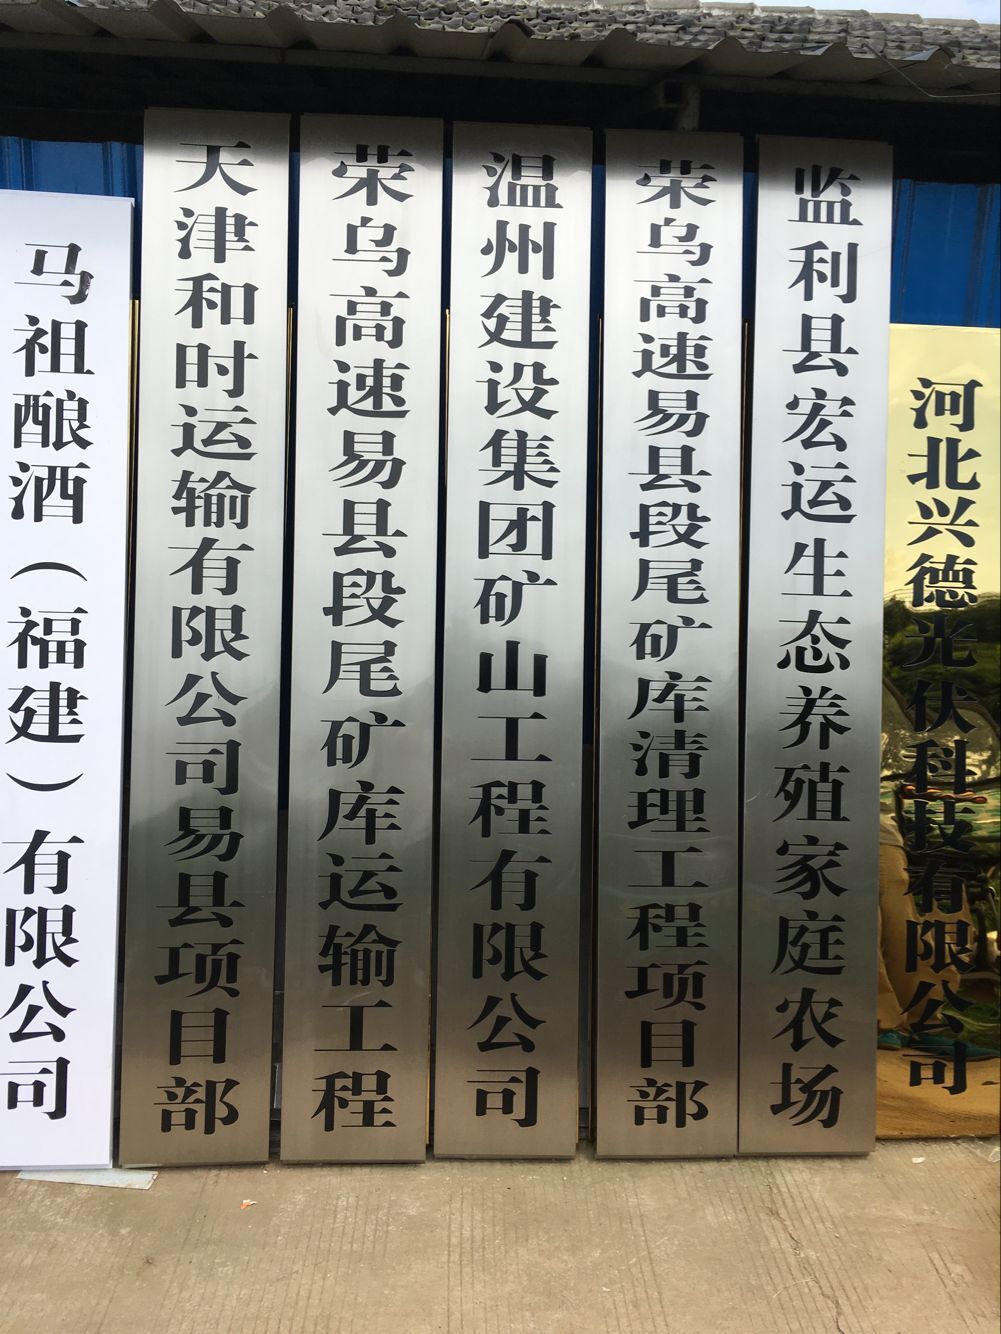 马祖酿酒（福建）有限公司
天津和时运输有限公司易县项目部
荣乌高速易县段尾矿库运输工程
温州建设集团矿山工程有限公司
荣乌高速易县段尾矿库清理工程项目部
监利县宏运生态养殖家庭农场
河北兴德光伏科技有限公司